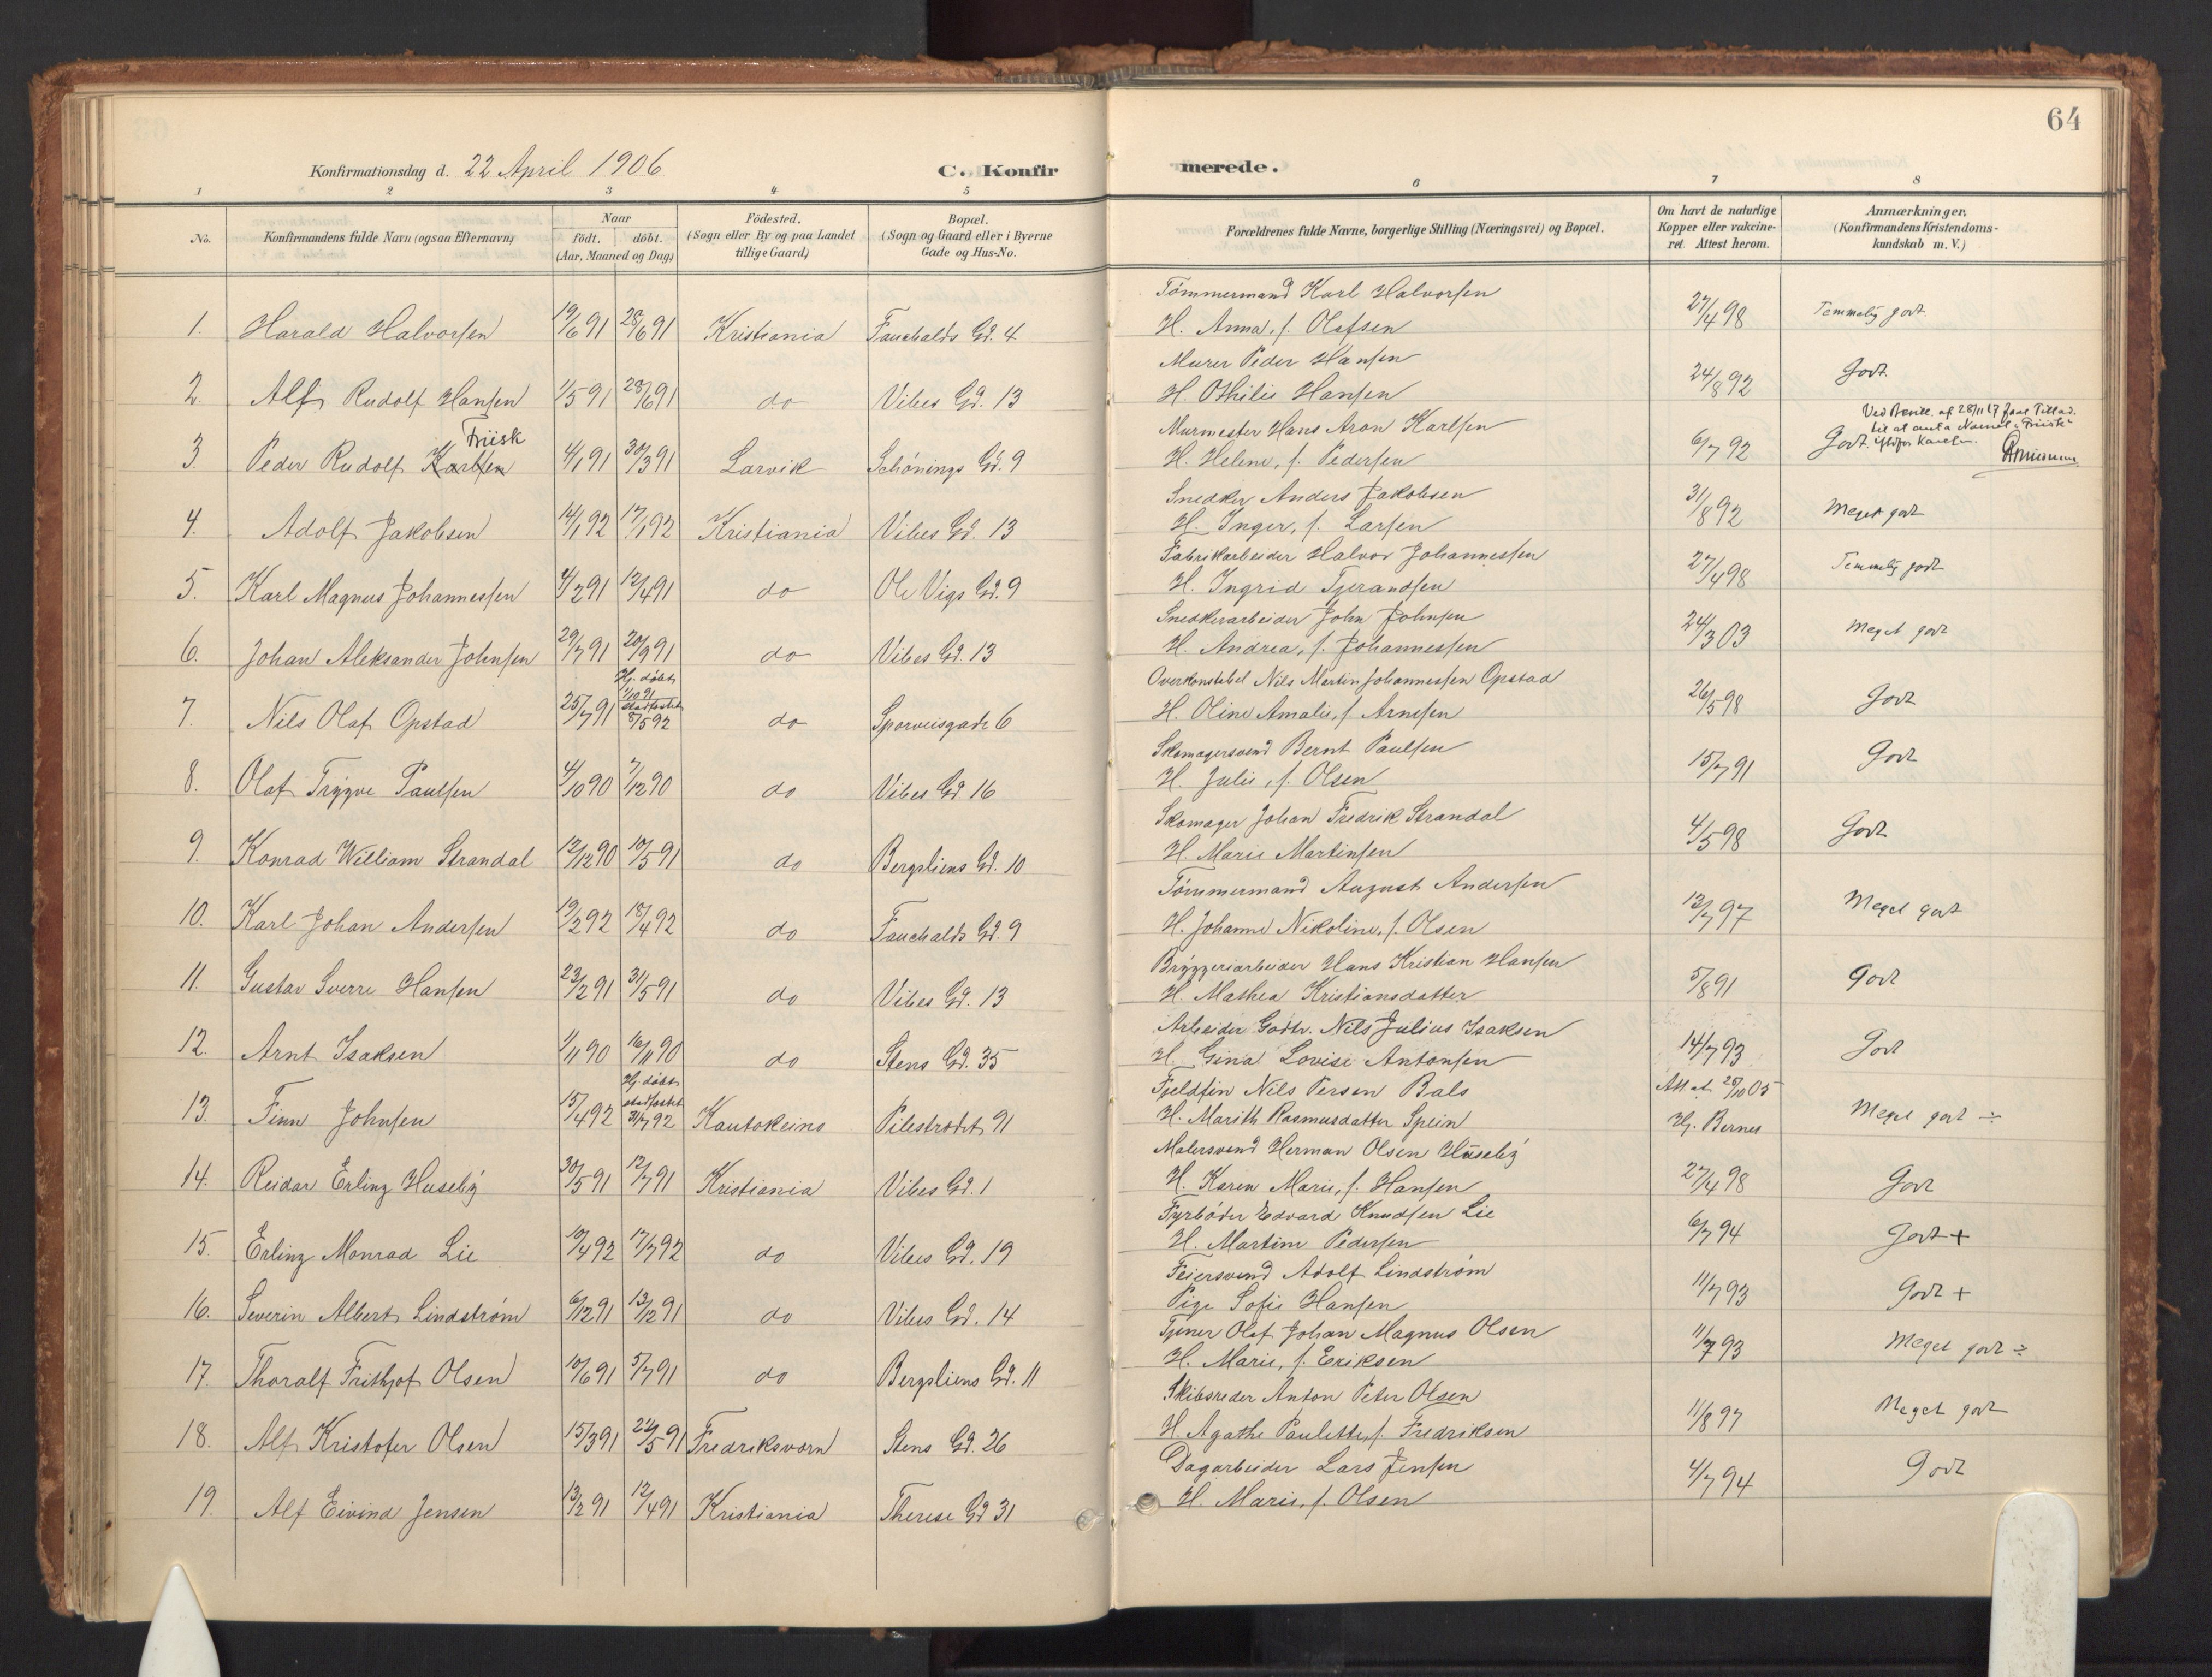 64
Konfirmationsdag d. 22 April 1906 C. Konfirmerede.
1 2 3 4. 5 6 7 8
No. Konfirmandens fulde Navn (ogsaa Efternavn) Naar født. døbt. (Aar, Maaned og Dag) Födested. (Sogn eller By og paa Landet tillige Gaard) Bopæl. (Sogn og Gaard eller i Byerne Gade og Hus-No.
Forældrenes fulde Navne, borgerlige Stilling (Næringsvei) og Bopæl. Om havt de naturlige Kopper eller vakcineret. Attest herom. Anmærkninger. (Konfirmandens Kristendomskundskab m. V.)
Tömmermand Karl Halvorsen
1. Harald Halvorsen 19/6 91 28/6 91 Kristiania Fauchalds Gd. 4 H. Anna, f. Olafsen 27/4 98 Temmelig godt.
Murer Peder Hansen
2. Alf Rudolf Hansen 1/5 91 28/6 91 do Vibes Gd. 13 H. Othilie Hansen 24/8 92 Godt.
Friisk
Murmester Hans Aron Karlsen
Ved Bevill. af 28/11 17 faaet Tillad.
til at anta Navnet "Friisk"
3. Peder Rudolf Karlsen 4/1 91 30/3 91 Larvik Schönings Gd. 9 H. Helene, f. Pedersen 6/7 92 Godt. istdfor
Snedker Anders Jakobsen
4. Adolf Jakobsen 14/1 92 17/1 92 Kristiania Vibes Gd. 13 H. Inger, f. Larsen 31/8 92 Meget godt
Fabrikarbeider Halvor Johannessen
5. Karl Magnus Johannessen 4/2 91 12/4 91 do Ole Vigs Gd. 9 H. Ingrid Tjerandsen 27/4 98 Temmelig godt
Snedkerarbeider John Johnsen
6. Johan Aleksander Johnsen 29/7 91 20/9 91 do Vibes Gd. 13 H. Andrea, f. Johannessen 24/3 03 Meget godt
Hj. døbt 1/10 91 stadfæstet
Overkonstabel Nils Martin Johannessen Opstad
7. Nils Olaf Opstad 25/7 91 8/5 92 do Sporveisgade 6 H. Oline Amalie, f. Arnesen 26/5 98 Godt
Skomagersvend Bernt Paulsen
8. Olaf Trygve Paulsen 4/10 90 7/12 90 do Vibes Gd. 16 H. Julie, f. Olsen 15/7 91 Godt
Skomager Johan Fredrik Strandal
9. Konrad William Strandal 12/12 90 10/5 91 do Bergsliens Gd. 10 H. Marie Martinsen 4/5 98 Godt
Tömmermand August Andersen
10. Karl Johan Andersen 19/2 92 18/4 92 do Fauchalds Gd. 9 H. Johanne Nikoline, f. Olsen 13/7 97 Meget godt
Bryggeriarbeider Hans Kristian Hansen
11. Gustav Sverre Hansen 23/2 91 31/5 91 do Vibes Gd. 13 H. Mathea Kristiansdatter 5/8 91 Godt
Arbeider Godtr. Nils Julius Isaksen
12. Arnt Isaksen 1/11 90 16/11 90 do Stens Gd. 35 H. Gina Lovise Antonsen 14/7 93 Godt
Hj. døbt stadfæstet
Fjeldfin Nils Persen Bals Att at 25/10 05
13. Finn Johnsen 15/4 92 31/7 92 Kautokeino Pilestrædet 91 H. Marith Rasmusdatter Spein Hj. Berner Meget godt ÷
Malersvend Herman Olsen Huseby
14. Reidar Erling Huseby 30/5 91 12/7 91 Kristiania Vibes Gd. 1 H. Karen Marie, f. Hansen 27/4 98 Godt
Fyrbøder Edvard Knudsen Lie
15. Erling Monrad Lie 10/4 92 17/7 92 do Vibes Gd. 19 H. Martine Pedersen 6/7 94 Godt +
Feiersvend Adolf Lindström
16. Severin Albert Lindström 6/12 91 13/12 91 do Vibes Gd. 14 Pige Sofie Hansen 11/7 93 Godt +
Tjener Olaf Johan Magnus Olsen
17. Thoralf Frithjof Olsen 10/6 91 5/7 91 do Bergsliens Gd. 11 H. Marie, f. Eriksen 11/7 93 Meget godt ÷
Skibsreder Anton Peter Olsen
18. Alf Kristofer Olsen 15/3 91 24/5 91 Fredriksværn Stens Gd. 26 H. Agathe Paulette, f. Fredriksen 11/8 97 Meget godt
Dagarbeider Lars Jensen
19. Alf Eivind Jensen 13/2 91 12/4 91 Kristiania Therese Gd 31 H. Marie, f. Olsen 4/7 94 Godt